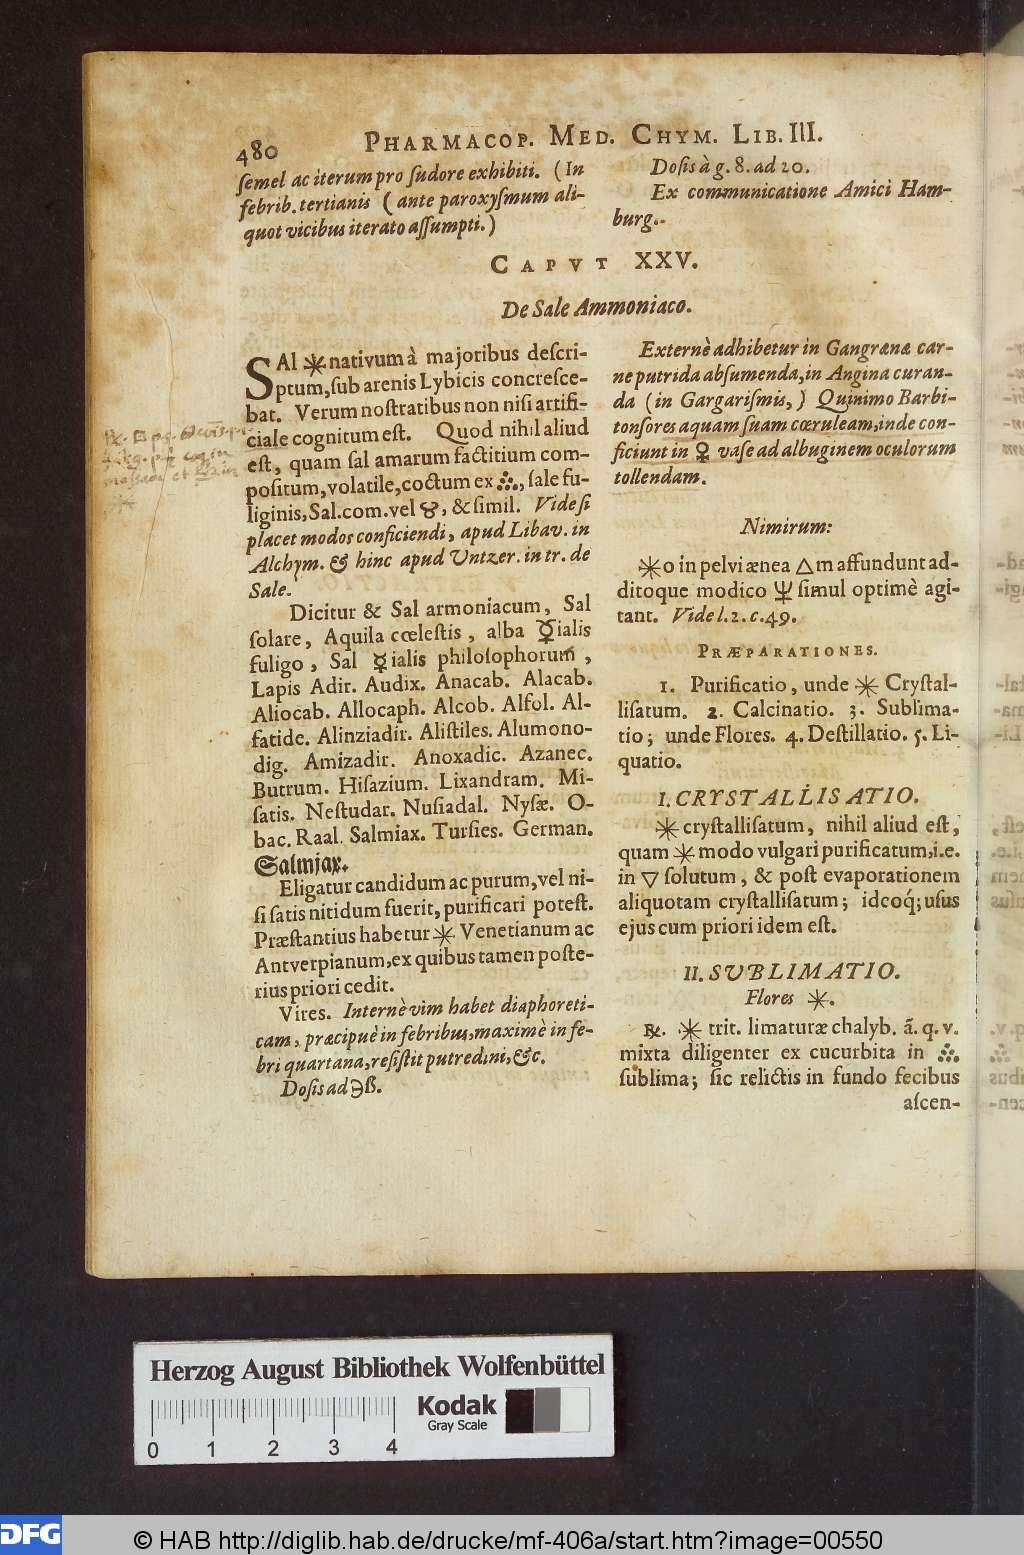 480 PHARMACOP. MED. CHYM. LIB. III.
ſemel ac iterum pro ſudore exhibiti. (In
febrib. tertianis (ante paroxyſmum ali-
quot vicibus iterato aſſumpti.)
Doſis à g. 8. ad 20.
Ex communicatione Amici Ham-
burg..
CAPVT XXV.
De Sale Ammoniaco.
SAl ✶ nativum à majoribus deſcri-
ptum, ſub arenis Lybicis concreſce-
bat. Verum noſtratibus non niſi artifi-
ciale cognitum eſt. Quod nihil aliud
eſt, quam ſal amarum factitium com-
poſitum, volatile, coctum ex ஃ, ſale fu-
liginis, Sal. com. vel ♉, & ſimil. Vide ſi
placet modos conficiendi, apud Libav. in
Alchym. & hinc apud Vntzer. in tr. de
Sale.
Dicitur & Sal armoniacum, Sal
ſolare, Aquila cœleſtis, alba ☿ialis
fuligo, Sal ☿ialis philoſophorum,
Lapis Adir. Audix. Anacab. Alacab.
Aliocab. Allocaph. Alcob. Alfol. Al-
fatide. Alinziadir. Aliſtiles. Alumono-
dig. Amizadir. Anoxadic. Azanec.
Butrum. Hiſazium. Lixandram. Mi-
ſatis. Neſtudar. Nuſiadal. Nyſæ. O-
bac. Raal. Salmiax. Turſies. German.
Salmiax.
Eligatur candidum ac purum, vel ni-
ſi ſatis nitidum fuerit, purificari poteſt.
Præſtantius habetur ✶ Venetianum ac
Antverpianum, ex quibus tamen poſte-
rius priori cedit.
Vires. Internè vim habet diaphoreti-
cam, præcipuè in febribus, maximè in fe-
bri quartana, reſiſtit putredini, &c.
Doſis ad ℈ß.
Externè adhibetur in Gangræna car-
ne putrida abſumenda, in Angina curan-
da (in Gargariſmis,) Quinimo Barbi-
tonſores aquam ſuam cœruleam, inde con-
ficiunt in ♀ vaſe ad albuginem oculorum
tollendam.
Nimirum:
✶o in pelvi ænea △m affundunt ad-
ditoque modico 🜏 ſimul optimè agi-
tant. Vide l. 2. c. 49.
PRÆPARATIONES.
1. Purificatio, unde ✶ Cryſtal-
liſatum. 2. Calcinatio. 3. Sublima-
tio; unde Flores. 4. Deſtillatio. 5. Li-
quatio.
I. CRYSTALLISATIO.
✶ cryſtalliſatum, nihil aliud eſt,
quam ✶ modo vulgari purificatum, i.e.
in ▽ ſolutum, & poſt evaporationem
aliquotam cryſtalliſatum; ideoq́; uſus
ejus cum priori idem eſt.
II. SVBLIMATIO.
Flores ✶.
℞. ✶ trit. limaturæ chalyb. ã. q. v.
mixta diligenter ex cucurbita in ஃ
ſublima; ſic relictis in fundo fecibus
aſcen-
Herzog August Bibliothek Wolfenbüttel
0 1 2 3 4
Kodak
Gray Scale
DFG
© HAB http://diglib.hab.de/drucke/mf-406a/start.htm?image=00550